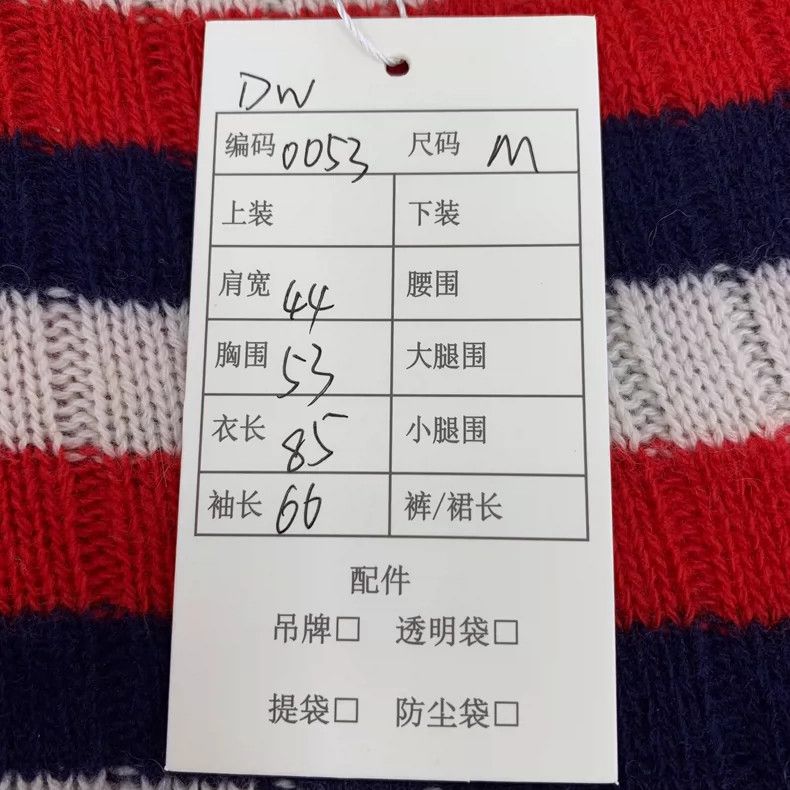 DW
编码 0053 尺码 M
上装 下装
肩宽 44 腰围
胸围 53 大腿围
衣长 85 小腿围
袖长 66 裤/裙长
配件
吊牌□ 透明袋□
提袋□ 防尘袋□